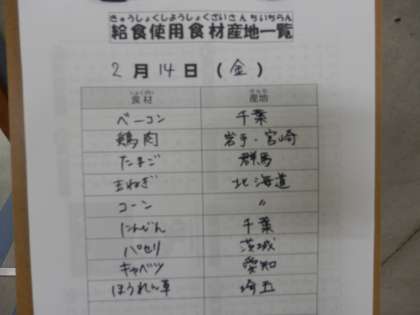 きゅうしょくしようしょくざいさんちいちらん
給食使用食材産地一覧
2月14日(金)
しょくざい さんち
食材 産地
ベーコン 千葉
鶏肉 岩手・宮崎
たまご 群馬
玉ねぎ 北海道
コーン 〃
にんじん 千葉
パセリ 茨城
キャベツ 愛知
ほうれん草 埼玉